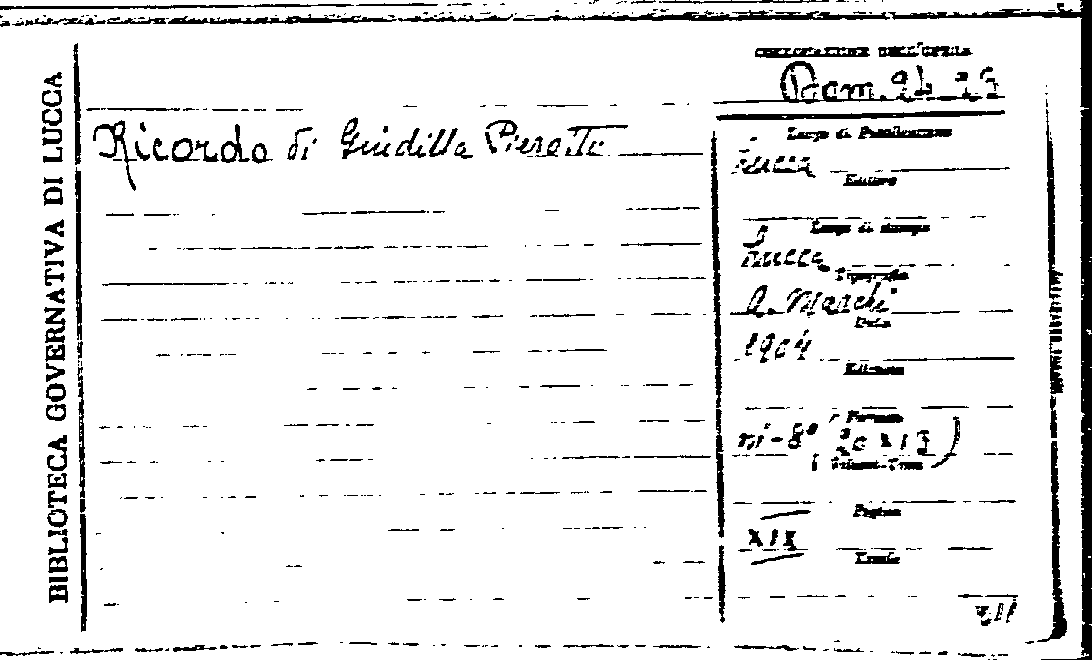 BIBLIOTECA GOVERNATIVA DI LUCCA
COLLOCAZIONE DELL'OPERA
Ricordo di Giuditta Pierotti
Luogo di Pubblicazione
Lucca
Editore
Luogo di stampa
Lucca
Tipografia
A. Marchi
Data
1904
Edizione
Formato
in-8° (20x13)
Pagine
XIX